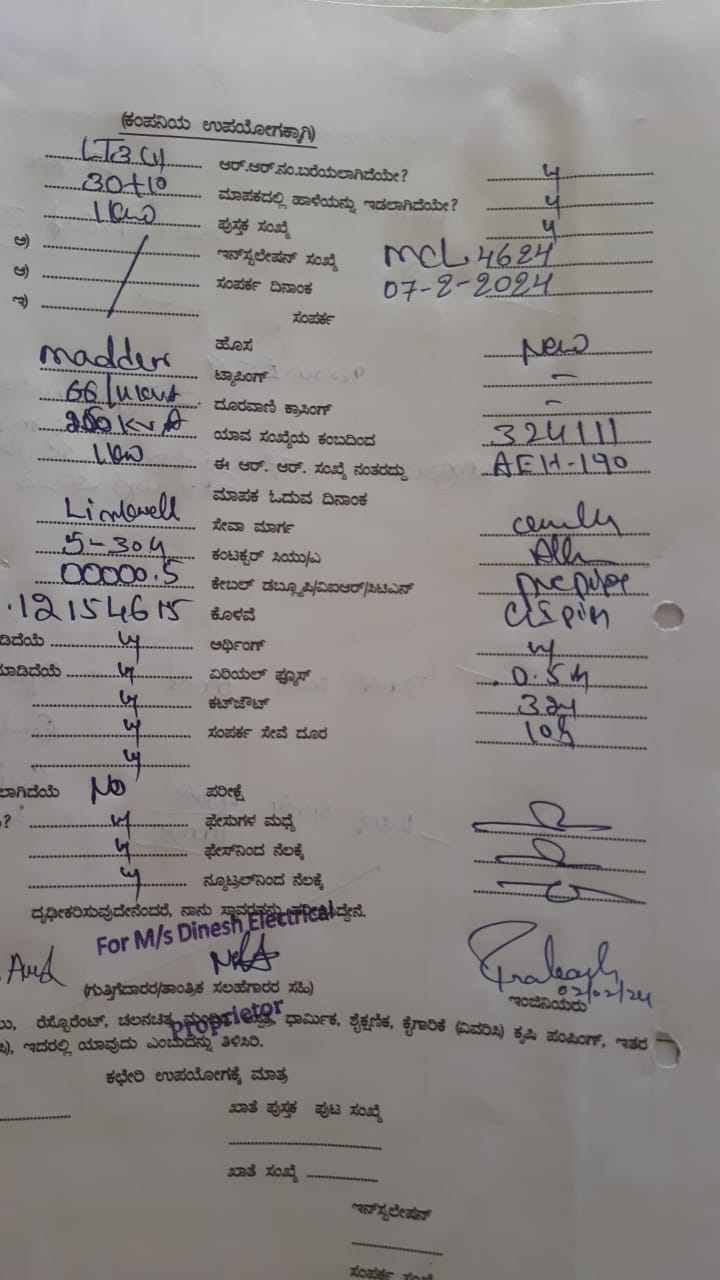 (ಕಂಪನಿಯ ಉಪಯೋಗಕ್ಕಾಗಿ)
LT3(1) ಆರ್.ಆರ್.ನಂ.ಬರೆಯಲಾಗಿದೆಯೇ? y
30+10 ಮಾಪಕದಲ್ಲಿ ಹಾಳೆಯನ್ನು ಇಡಲಾಗಿದೆಯೇ? y
1kw ಪುಸ್ತಕ ಸಂಖ್ಯೆ y
ಅ) ಇನ್‌ಸ್ಟಲೇಷನ್ ಸಂಖ್ಯೆ MCL 4624
ಆ) ಸಂಪರ್ಕ ದಿನಾಂಕ 07-2-2024
ಇ) ಸಂಪರ್ಕ
madder ಹೊಸ New
66/11kv ಟ್ಯಾಪಿಂಗ್ -
250 KVA ದೂರವಾಣಿ ಕ್ರಾಸಿಂಗ್ -
1kw ಯಾವ ಸಂಖ್ಯೆಯ ಕಂಬದಿಂದ 324111
ಈ ಆರ್. ಆರ್. ಸಂಖ್ಯೆ ನಂತರದ್ದು AEH-190
ಮಾಪಕ ಓದುವ ದಿನಾಂಕ
ಸೇವಾ ಮಾರ್ಗ
5-30 ಕಂಟಕ್ಟರ್ ಸಿಯು/ಎ
00000.5 ಕೇಬಲ್ ಡಬ್ಲ್ಯೂಪಿ/ವಿಐಆರ್/ಸಿಟಿಎಸ್
12154615 ಕೊಳವೆ
ಡಿದೆಯೆ y ಅರ್ಥಿಂಗ್ y
ಮಾಡಿದೆಯೆ y ಏರಿಯಲ್ ಫ್ಯೂಸ್ 0.5
y ಕಟ್‌ಔಟ್ 32
y ಸಂಪರ್ಕ ಸೇವೆ ದೂರ 10
y
ಲಾಗಿದೆಯೆ No ಪರೀಕ್ಷೆ
? y ಫೇಸುಗಳ ಮಧ್ಯೆ
y ಫೇಸ್‌ನಿಂದ ನೆಲಕ್ಕೆ
y ನ್ಯೂಟ್ರಲ್‌ನಿಂದ ನೆಲಕ್ಕೆ
ದೃಢೀಕರಿಸುವುದೇನೆಂದರೆ, ನಾನು
For M/s Dinesh Electrical
Prakash
02/02/24
(ಗುತ್ತಿಗೆದಾರರ/ತಾಂತ್ರಿಕ ಸಲಹೆಗಾರರ ಸಹಿ) ಇಂಜಿನಿಯರು
Proprietor
ಲು, ರೆಸ್ಟೊರೆಂಟ್, ಚಲನಚಿತ್ರ ಧಾರ್ಮಿಕ, ಶೈಕ್ಷಣಿಕ, ಕೈಗಾರಿಕೆ (ವಿವರಿಸಿ) ಕೃಷಿ ಪಂಪಿಂಗ್, ಇತರ
), ಇದರಲ್ಲಿ ಯಾವುದು ಎಂಬುದನ್ನು ತಿಳಿಸಿರಿ.
ಕಛೇರಿ ಉಪಯೋಗಕ್ಕೆ ಮಾತ್ರ
ಖಾತೆ ಪುಸ್ತಕ ಪುಟ ಸಂಖ್ಯೆ
ಖಾತೆ ಸಂಖ್ಯೆ
ಇನ್‌ಸ್ಟಲೇಷನ್
ಸಂಪರ್ಕ ಸಂಖ್ಯೆ